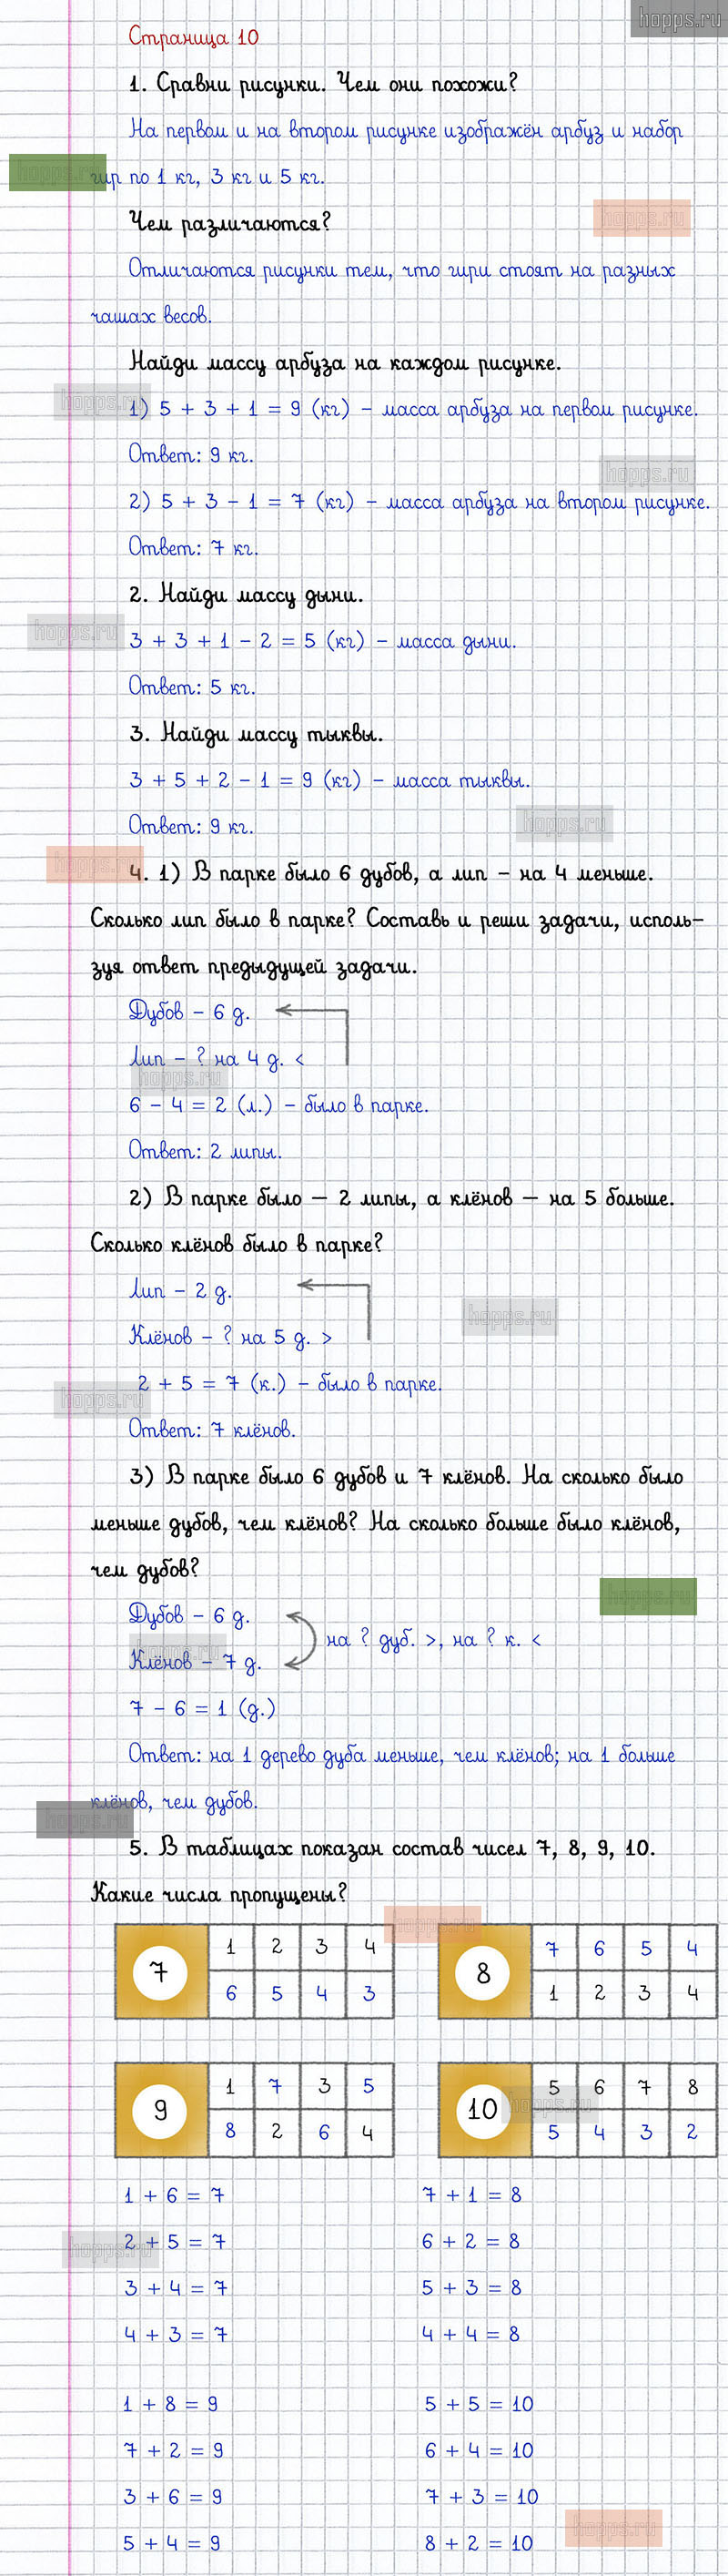 hopps.ru
Страница 10
1. Сравни рисунки. Чем они похожи?
На первом и на втором рисунке изображён арбуз и набор
гир по 1 кг, 3 кг и 5 кг.
Чем различаются?
Отличаются рисунки тем, что гири стоят на разных
чашах весов.
Найди массу арбуза на каждом рисунке.
1) 5 + 3 + 1 = 9 (кг) – масса арбуза на первом рисунке.
Ответ: 9 кг.
2) 5 + 3 – 1 = 7 (кг) – масса арбуза на втором рисунке.
Ответ: 7 кг.
2. Найди массу дыни.
3 + 3 + 1 – 2 = 5 (кг) – масса дыни.
Ответ: 5 кг.
3. Найди массу тыквы.
3 + 5 + 2 – 1 = 9 (кг) – масса тыквы.
Ответ: 9 кг.
4. 1) В парке было 6 дубов, а лип – на 4 меньше.
Сколько лип было в парке? Составь и реши задачи, исполь-
зуя ответ предыдущей задачи.
Дубов – 6 д.
Лип – ? на 4 д. <
6 – 4 = 2 (л.) – было в парке.
Ответ: 2 липы.
2) В парке было — 2 липы, а клёнов — на 5 больше.
Сколько клёнов было в парке?
Лип – 2 д.
Клёнов – ? на 5 д. >
2 + 5 = 7 (к.) – было в парке.
Ответ: 7 клёнов.
3) В парке было 6 дубов и 7 клёнов. На сколько было
меньше дубов, чем клёнов? На сколько больше было клёнов,
чем дубов?
Дубов – 6 д.
на ? дуб. >, на ? к. <
Клёнов – 7 д.
7 – 6 = 1 (д.)
Ответ: на 1 дерево дуба меньше, чем клёнов; на 1 больше
клёнов, чем дубов.
5. В таблицах показан состав чисел 7, 8, 9, 10.
Какие числа пропущены?
7 1 2 3 4
6 5 4 3
8 7 6 5 4
1 2 3 4
9 1 7 3 5
8 2 6 4
10 5 6 7 8
5 4 3 2
1 + 6 = 7 7 + 1 = 8
2 + 5 = 7 6 + 2 = 8
3 + 4 = 7 5 + 3 = 8
4 + 3 = 7 4 + 4 = 8
1 + 8 = 9 5 + 5 = 10
7 + 2 = 9 6 + 4 = 10
3 + 6 = 9 7 + 3 = 10
5 + 4 = 9 8 + 2 = 10